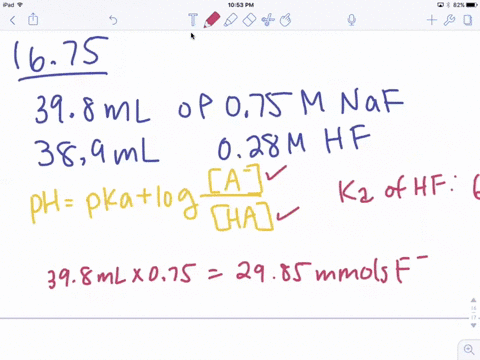 iPad
10:53 PM
82%
T
16.75
39.8mL of 0.75 M NaF
38,9mL 0.28M HF
pH = pKa + log [A⁻] ✓
[HA] ✓
Ka of HF:
39.8mL × 0.75 = 29.85 mmols F⁻